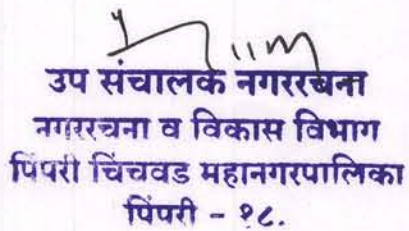 उप संचालक नगररचना
नगररचना व विकास विभाग
पिंपरी चिंचवड महानगरपालिका
पिंपरी - १८.